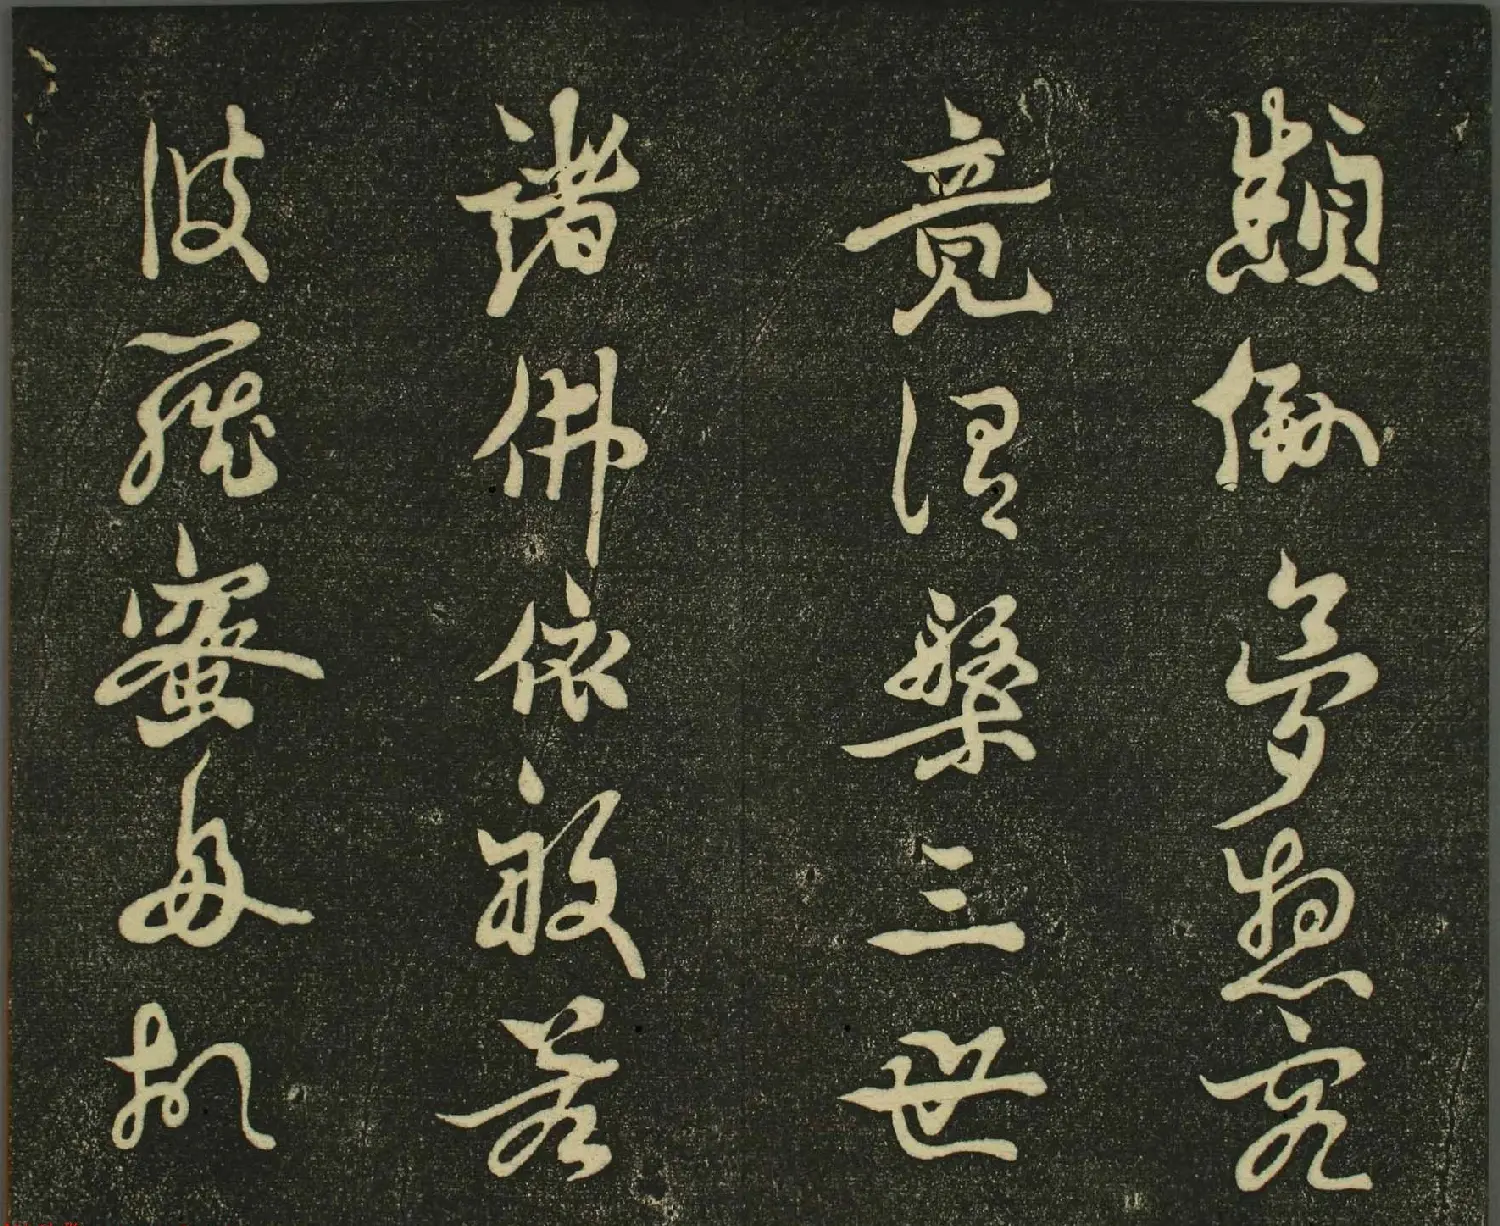 顛倒夢想究
竟涅槃三世
諸佛依般若
波羅蜜多故